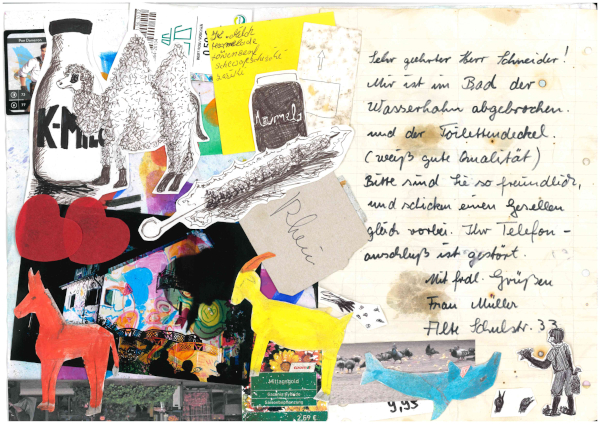 K-Milch
Marmelade
Löwensenf
Schlafschnecke
Marmela
Rhein
Sehr geehrter Herr Schneider!
Mir ist im Bad der
Wasserhahn abgebrochen
und der Toilettendeckel.
(weiß gute Qualität)
Bitte sind Sie so freundlich,
und schicken einen Gesellen
gleich vorbei. Ihr Telefon-
anschluß ist gestört.
Mit frdl. Grüßen
Frau Müller
Alte Schulstr. 33
Mittagsgold
2,69 €
9,95